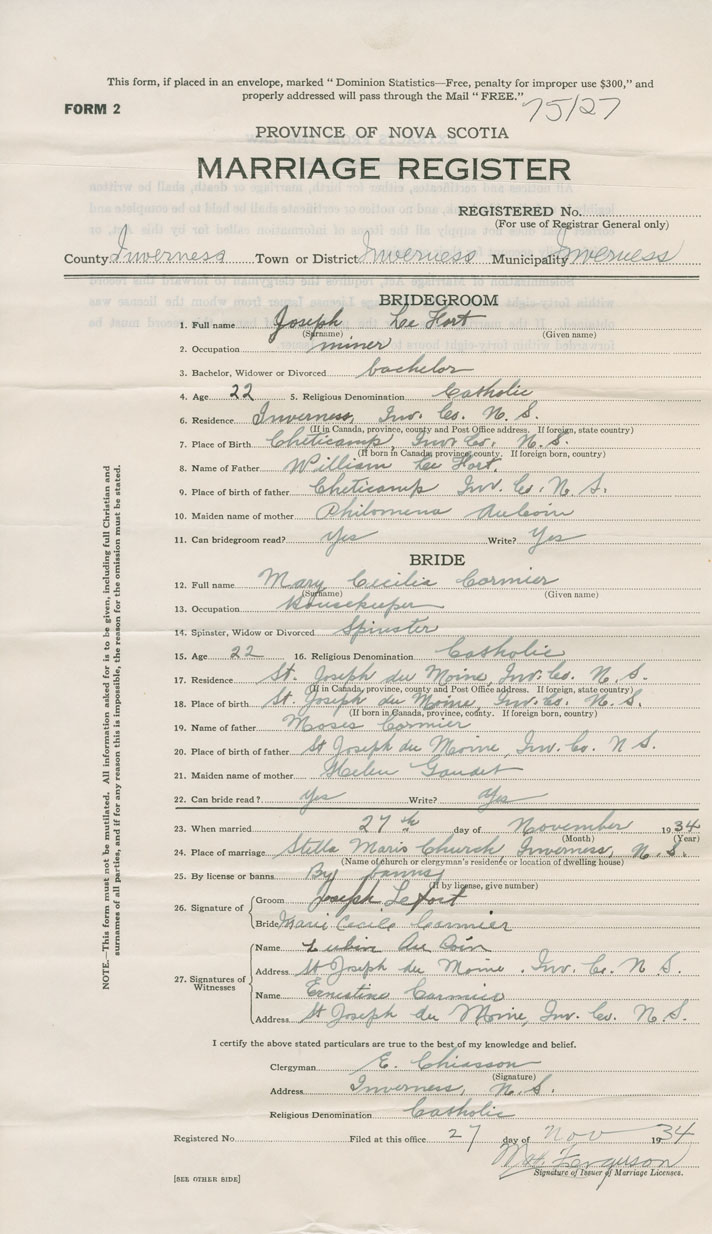 This form, if placed in an envelope, marked " Dominion Statistics—Free, penalty for improper use $300," and
properly addressed will pass through the Mail " FREE."
FORM 2
75/27
PROVINCE OF NOVA SCOTIA
MARRIAGE REGISTER
REGISTERED No.
(For use of Registrar General only)
County Inverness Town or District Inverness Municipality Inverness
BRIDEGROOM
1. Full name Joseph Le Fort
(Surname) (Given name)
2. Occupation miner
3. Bachelor, Widower or Divorced bachelor
4. Age 22 5. Religious Denomination Catholic
6. Residence Inverness, Inv. Co. N. S.
(If in Canada, province, county and Post Office address. If foreign, state country)
7. Place of Birth Cheticamp, Inv. Co. N. S.
(If born in Canada, province, county. If foreign born, country)
8. Name of Father William Le Fort.
9. Place of birth of father Cheticamp Inv. Co. N. S.
10. Maiden name of mother Philomena Aucoin
11. Can bridegroom read? Yes Write? Yes
BRIDE
12. Full name Mary Cecilia Cormier
(Surname) (Given name)
13. Occupation Housekeeper
14. Spinster, Widow or Divorced Spinster
15. Age 22 16. Religious Denomination Catholic
17. Residence St. Joseph du Moine, Inv. Co. N. S.
(If in Canada, province, county and Post Office address. If foreign, state country)
18. Place of birth St. Joseph du Moine, Inv. Co. N. S.
(If born in Canada, province, county. If foreign born, country)
19. Name of father Moses Cormier
20. Place of birth of father St Joseph du Moine, Inv. Co. N S.
21. Maiden name of mother Helen Gaudet
22. Can bride read? Yes Write? Yes
23. When married 27th day of November 1934
(Month) (Year)
24. Place of marriage Stella Maris Church, Inverness, N. S.
(Name of church or clergyman's residence or location of dwelling house)
25. By license or banns By banns
(If by license, give number)
26. Signature of Groom Joseph LeFort
Bride Marie Cecile Cormier
27. Signatures of Witnesses
Name Lubin Au Coin
Address St Joseph du Moine, Inv. Co. N S.
Name Ernestine Cormier
Address St Joseph du Moine, Inv. Co. N. S.
I certify the above stated particulars are true to the best of my knowledge and belief.
Clergyman E. Chiasson
(Signature)
Address Inverness, N. S.
Religious Denomination Catholic
Registered No. Filed at this office 27 day of Nov 1934
Ferguson
Signature of Issuer of Marriage Licenses.
[SEE OTHER SIDE]
NOTE.—This form must not be mutilated. All information asked for is to be given, including full Christian and
surnames of all parties, and if for any reason this is impossible, the reason for the omission must be stated.